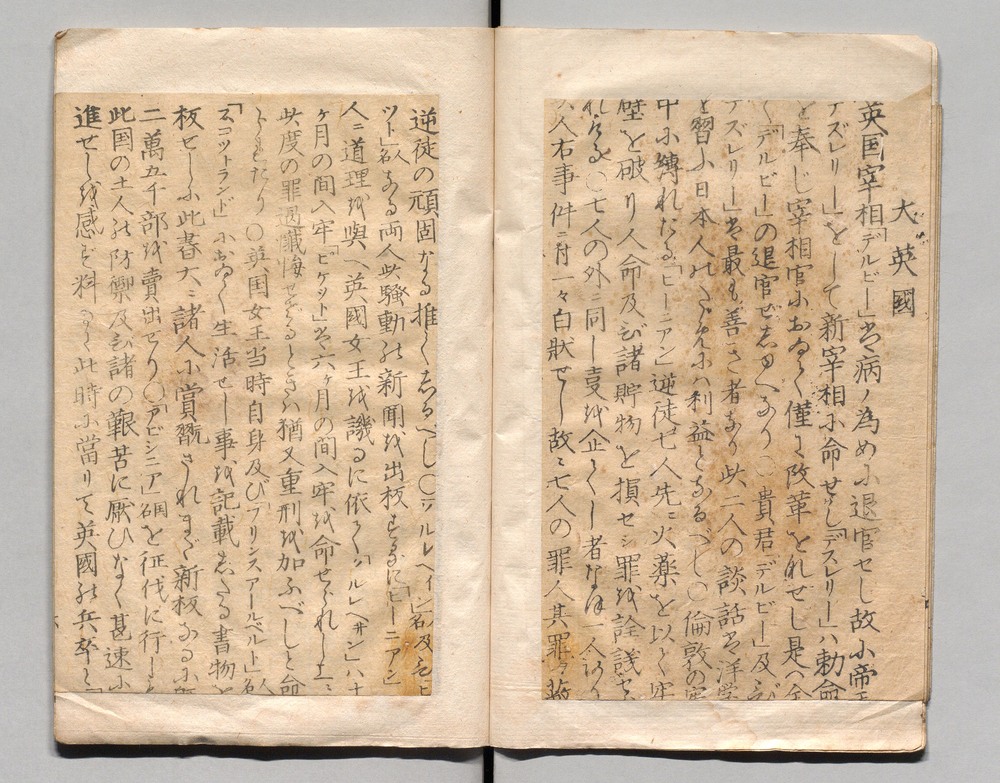 大英國
英国宰相「デルビー」者病ノ為めに退官せし故に帝王
デズレリー」をして新宰相に命せらし「デスレリー」ハ勅命
を奉じ宰相官におゐて僅に改革をれせし是へ全
く「デルビー」の退官せしゆへなり〇貴君「デルビー」及び
デズレリー」者最も善き者なり此二人の談話者洋学
を習ふ日本人れためにハ利益となるべし〇倫敦の牢
中に縛れたる「ヒーニアン」逆徒七人先ニ火薬を以て牢
壁を破り人命及び諸貯物を損せシ罪を詮議せ
れ〇七人の外ニ同し㕝を企てし者なほ一人
人右事件ニ付一々白狀せし故ニ七人の罪人其罪
逆徒の頑固なる推てしるべし〇「ヲルレヘイン」人名及ひ「ピ
ツト」人名なる両人此騒動の新聞を出板せしに「ヒーニアン」
人ニ道理を與へ英國女王を譏るに依て「ハルレヘサン」ハ十
ヶ月の間入牢「ピケット」者六ヶ月の間入牢を命せられし上ニ
此度の罪過懺悔せざるときハ猶又重刑を加ふべしと命
〇英国女王当時自身及び「プリンスアールベルト」人名
「スコツトランド」におゐて生活せし事を記載したる書物を
板せしに此書大ニ諸人に賞翫されまだ新板なるに
二萬五千部を賣出せり〇「アビシニア」國を征伐に行し
此国の土人の防禦及び諸の艱苦に厭ひなく甚速に
進せしを感ぜ料 此時に當りて英國の兵卒と